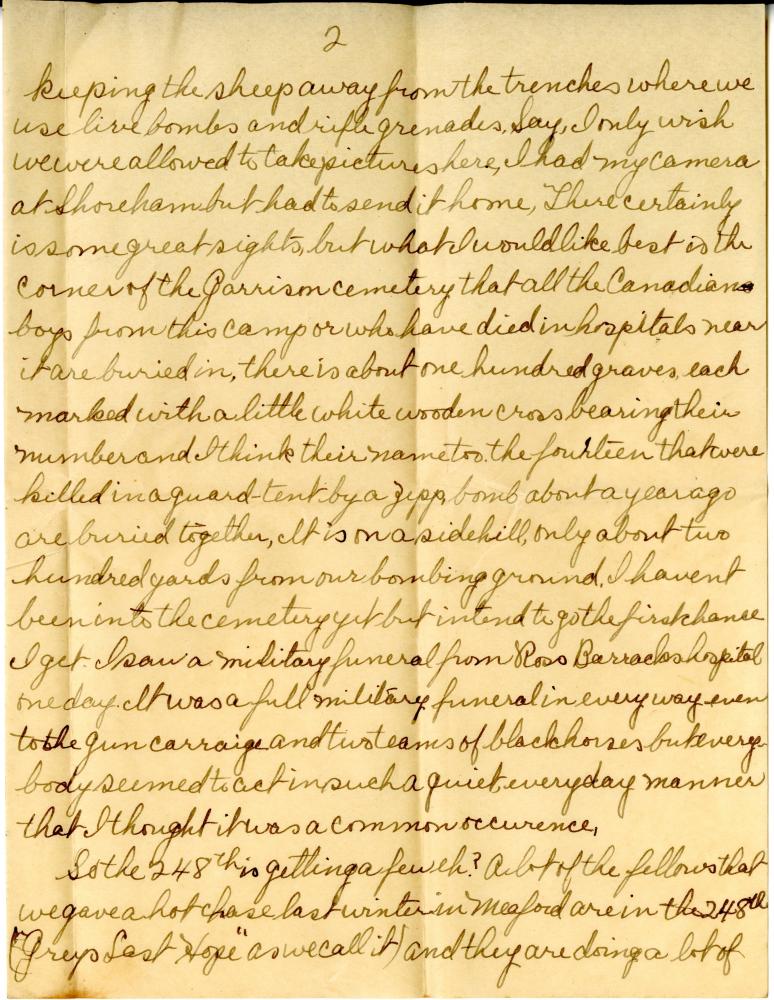 2
keeping the sheep away from the trenches where we
use live bombs and rifle grenades, Say, I only wish
we were allowed to take pictures here, I had my camera
at Shoreham but had to send it home, There certainly
is some great sights, but what I would like best is the
corner of the Garrison cemetery that all the Canadian
boys from this camp or who have died in hospitals near
it are buried in, there is about one hundred graves, each
marked with a little white wooden cross bearing their
number and I think their name too. the fourteen that were
killed in a guard-tent by a Zepp, bomb about a year ago
are buried together, It is on a sidehill, only about two
hundred yards from our bombing ground, I havent
been into the cemetery yet but intend to go the first chance
I get. I saw a military funeral from Ross Barracks hospital
one day. It was a full military funeral in every way even
to the gun carraige and two teams of black horses but every
body seemed to act in such a quiet, everyday manner
that I thought it was a common occurence,
So the 248th is getting a few eh? A lot of the fellows that
we gave a hot chase last winter in Meaford are in the 248th
("Greys Last Hope" as we call it) and they are doing a lot of